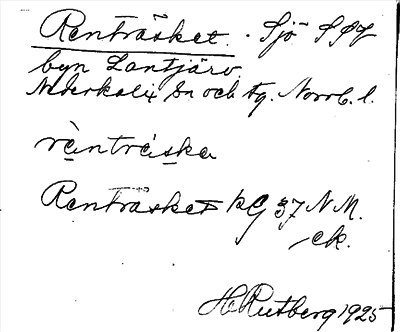 Renträsket. Sjö SSV
byn Lantjärv.
Nederkalix sn och tg. Norrb. l.
ränträska
Renträsket kG 37 N M.
ek.
H Rutberg 1925